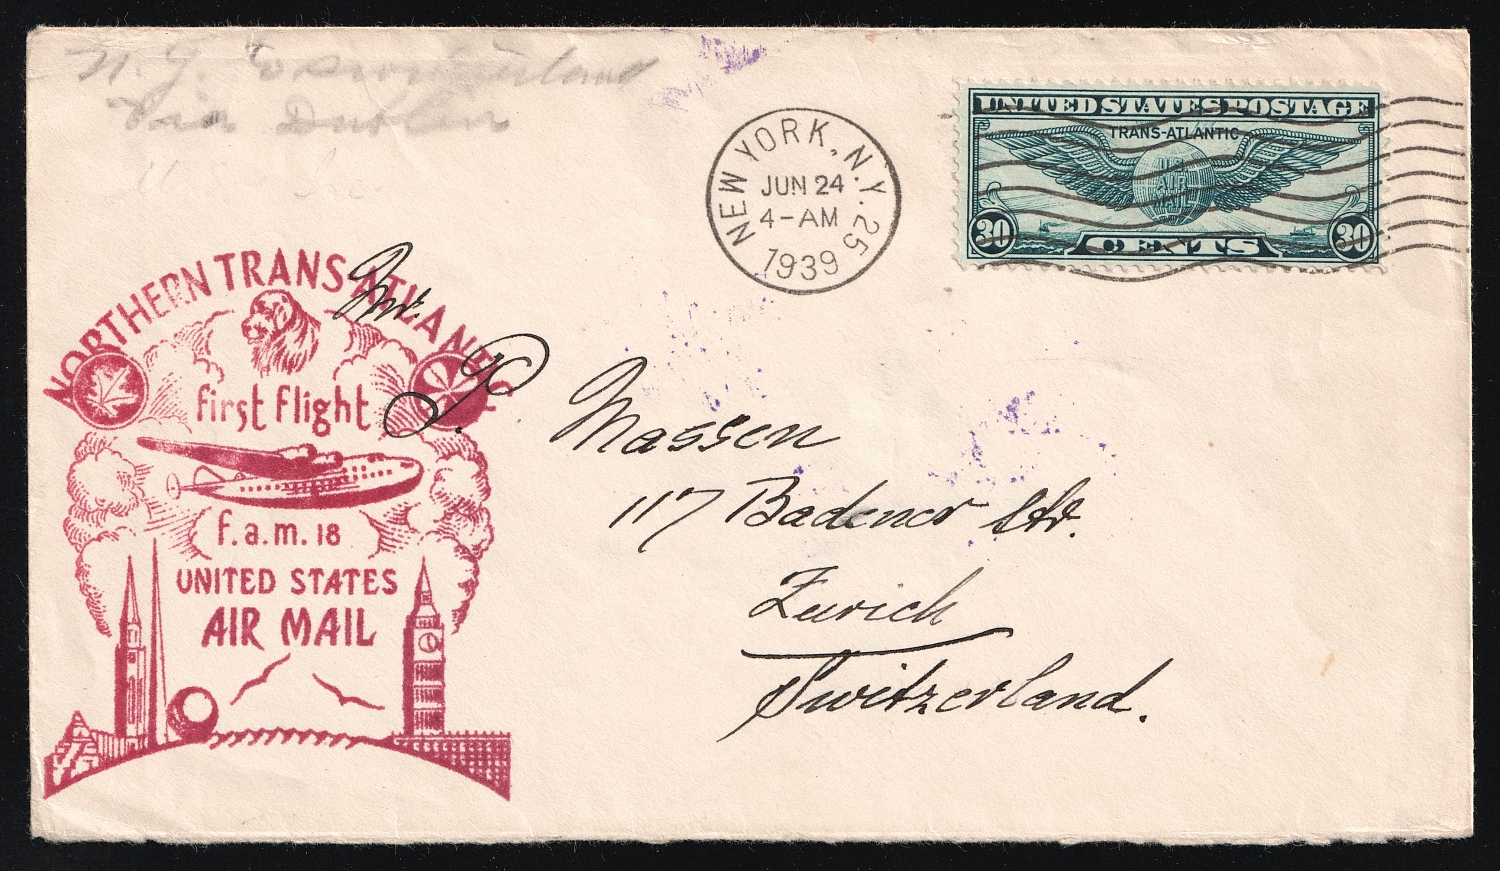 N.Y. to Switzerland
Via Dublin
NEW YORK, N.Y. 25
JUN 24
4-AM
1939
UNITED STATES POSTAGE
TRANS-ATLANTIC
U.S.
AIR
MAIL
30 CENTS 30
NORTHERN TRANS-ATLANTIC
first flight
f.a.m. 18
UNITED STATES
AIR MAIL
Mr.
J. Massen
117 Badener Str.
Zurich
Switzerland.